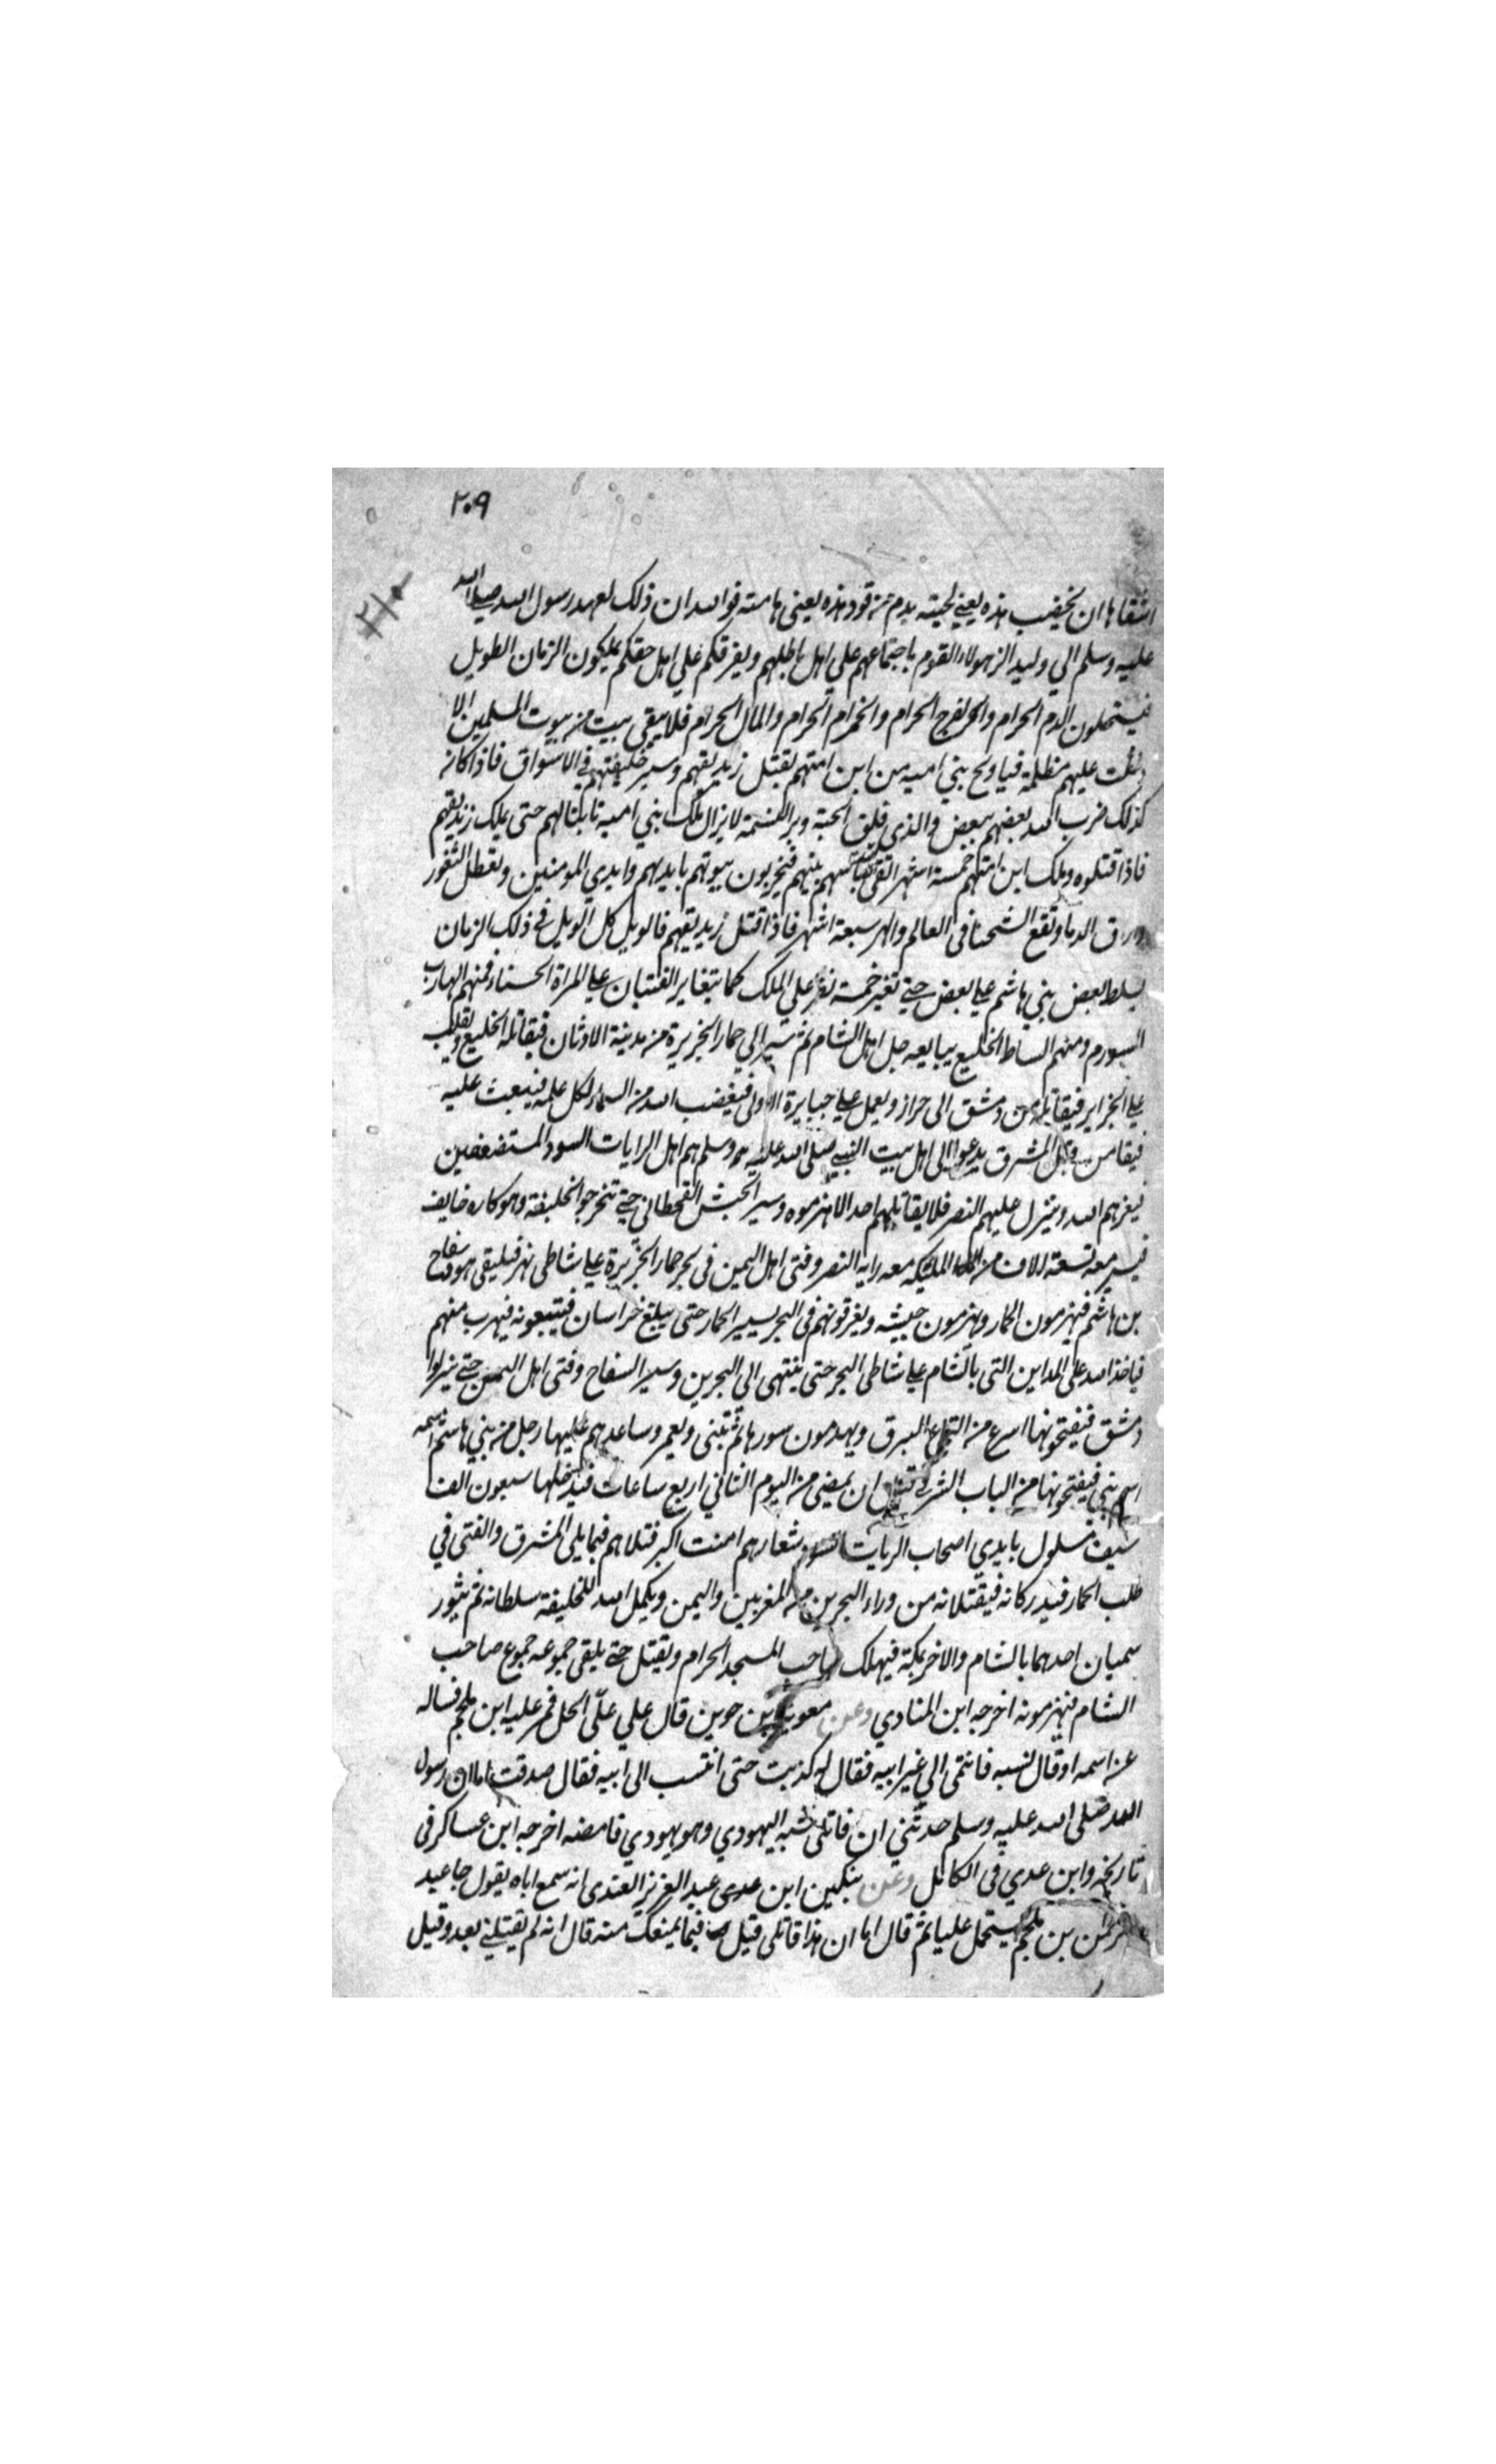 ٢٠٩
٢١٠
اشقاها ان يخضب هذه يعني لحيته بدم من قود هذه يعني هامته فوالله ان ذلك لعهد رسول الله صلى الله
عليه وسلم الي وليد الزهولاء القوم باجتماعهم علي اهل باطلهم وبفرقكم علي اهل حقكم يملكون الزمان الطويل
فيستحلون الدم الحرام والفرج الحرام والخمر الحرام والمال الحرام فلا يبقى بيت من بيوت المسلمين الا
دخلت عليهم مظلمة فيا ويح بني اميه من ابن امتهم يقتل زنديقهم وسير خليفتهم في الاسواق فاذا كانه
كذلك ضرب الله بعضهم ببعض والذي فلق الحبة وبرا النسمة لا يزال ملك بني امية ثابتا لهم حتى يملك زنديقهم
فاذا قتلوه وملك ابن امتهم خمسة اشهر القى باسهم بينهم فيخربون بيوتهم بايديهم وايدي المومنين وتعطل الثغور
وتراق الدماء وتقع الشحنا في العالم والهر سبعة اشهر فاذا قتل زنديقهم فالويل كل الويل في ذلك الزمان
يسلط بعض بني هاشم علي بعض حتي تغير خمسة نفر علي الملك كما يتغاير الفتيان علي المراة الحسناء فمنهم الهارب
المسورم ومنهم الساط الخليع يبايعه جل اهل الشام ثم يسير الي حمار الجزيرة من مدينة الاوثان فيقاتله الخليع ويغلب
علي الجزاير فيقاتله من دمشق الى حراز ويعمل عمل جبابرة الاولى فيغضب الله من السماء لكل عمله فيبعث عليه
فيقا من قبل المشرق يدعوا الى اهل بيت النبي صلى الله عليه وسلم هم اهل الرايات السود المستضعفين
فيعزهم الله وينزل عليهم النصر فلا يقاتلهم احد الا هزموه وسير الجيش القحطاني حتي تخرجوا الخليفة وهو كاره خايف
فيسير معه تسعة الاف من الملئكة معه راية النصر وفتى اهل اليمن في نحر حمار الجزيرة علي شاطى نهر فيلتقي هو وسفاح
بن هاشم فيهزمون الحمار ويهزمون جيشه ويغرقونهم في البحر يسير الحمار حتى يبلغ خراسان فيتبعونه فيهرب منهم
فياخذ الله على المداين التى بالشام علي شاطى البحر حتى ينتهى الى البحرين وسير السفاح وفتى اهل اليمن حتي ينزلوا
دمشق فيفتحونها اسرع من التماع البرق ويهدمون سورها ثم تبنى ويعمر وساعدهم عليها رجل من بني هاشم اسمه
اسم نبي فيفتحونها من الباب الشرقي قبل ان يمضى من اليوم الثاني اربع ساعات فيدخلها سبعون الف
سيف مسلول بايدي اصحاب الرايات السود شعارهم امت امت اكبر قتلاهم فيما يلى المشرق والفتى في
طلب الحمار فيدركانه فيقتلانه من وراء البحرين من المغربين واليمن ويكمل الله للخليفة سلطانه ثم يثور
سميان احدهما بالشام والاخر بمكة فيهلك صاحب المسجد الحرام ويقتل حتي يلقى جموعه جموع صاحب
الشام فيهزمونه اخرجه ابن المنادي وعن معوية بن جوين قال علي علي الحل فمر عليه ابن ملجم فساله
عن اسمه او قال نسبه فانتمى الي غير ابيه فقال له كذبت حتى انتسب الى ابيه فقال صدقت اما ان رسول
الله صلى الله عليه وسلم حدثني ان قاتلى شبه اليهودي وهو يهودي فامضه اخرجه ابن عساكر فى
تاريخه وابن عدي في الكامل وعن ابن عدى عبد العزيز العبدى انه سمع اباه يقول جا عبد
الرحمن بن ملجم يستحمل عليا ثم قال اما ان هذا قاتلى قيل فما يمنعك منه قال انه لم يقتلني بعد وقيل